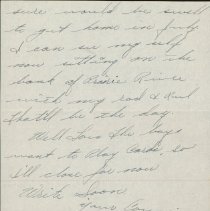 sure would be swell
to get home in July.
I can see my self
now sitting on the
bank of Prairie River
with my rod & Reel
That'll be the day.
Well Lois the boys
want to Play Cards, so
I'll close for now
Write Soon
Your